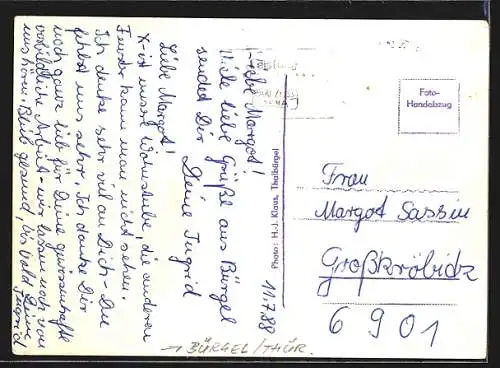 Liebe Margot!
Viele liebe Grüße aus Bürgel
sendet Dir Deine Ingrid
11.7.88
Liebe Margot!
X-ist unsre Wohnstube, die anderen
Fenster kann man nicht sehen.
Ich denke sehr viel an Dich - Du
fehlst uns sehr. Ich danke Dir
noch ganz lieb für Deine gewissenhafte
vorbildliche Arbeit - wir
Bleib gesund, bis bald Deine
Ingrid
Photo: H.-J. Klaus, Thalbürgel
Foto-
Handabzug
Frau
Margot Sassin
Großkröbitz
6901
→ BÜRGEL/THÜR.